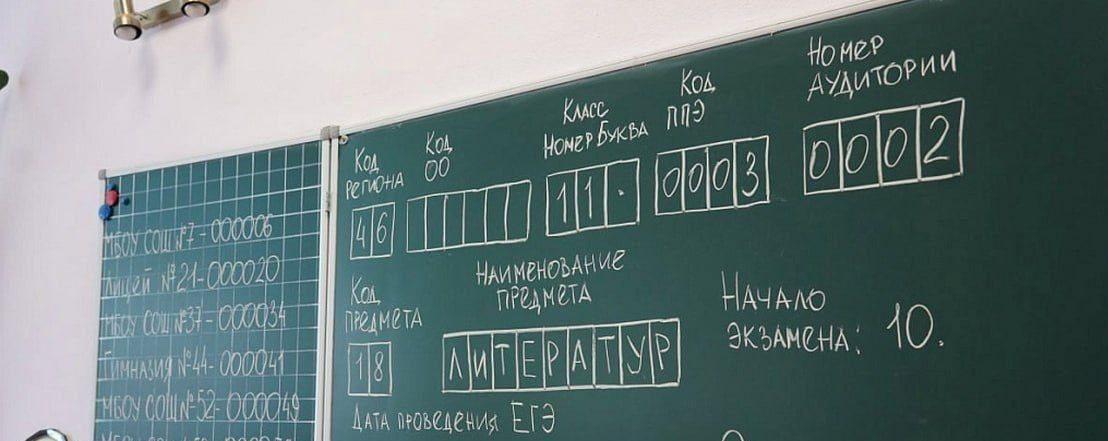 МБОУ СОШ №7-000006
Лицей №21-000020
МБОУ СОШ №37-000034
Гимназия №44-000041
МБОУ СОШ №52-000049
Код
региона
46
Код
ОО
Класс
Номер Буква
11.
Код
ППЭ
0003
Номер
аудитории
0002
Код
предмета
18
Наименование
предмета
ЛИТЕРАТУР
Начало
экзамена: 10.
Дата проведения ЕГЭ